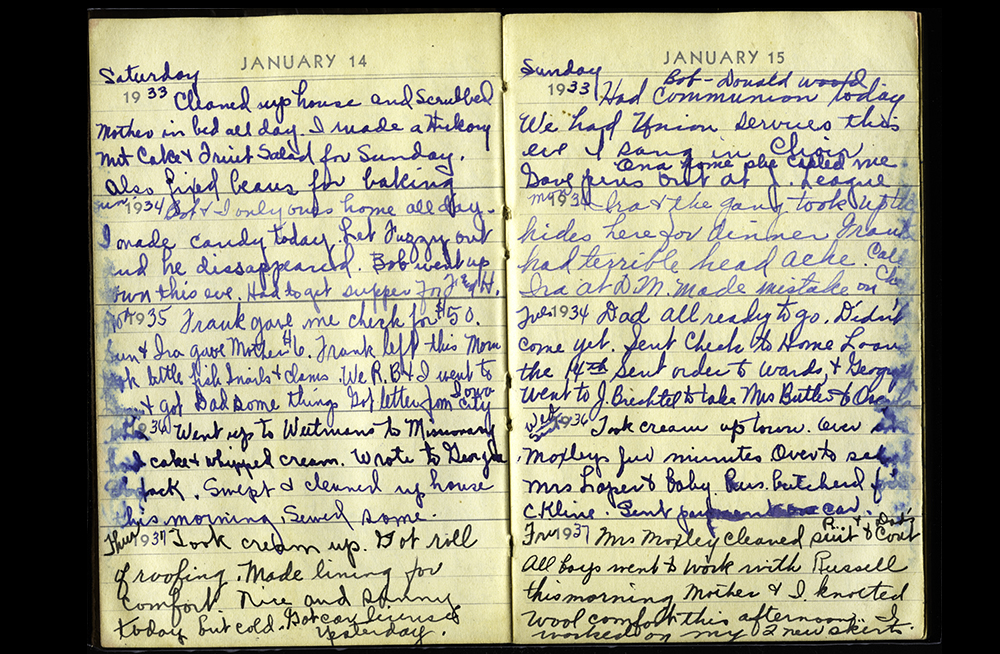 JANUARY 14
Saturday
1933 Cleaned up house and Scrubbed
Mother in bed all day. I made a Hickory
nut Cake & Fruit Salad for Sunday.
Also fixed beans for baking
1934 Bob & I only ones home all day.
I made candy today. Let Fuzzy out
and he dissappeared. Bob went up
town this eve. Had to get supper for
1935 Frank gave me check for $50.
Sun & Ira gave Mother $6. Frank left this Morn
little fish Snails & clams. We R.B & I went to
& got Dad some things Got letter from Iowa City
1936 Went up to Weitmans to Missionary
had cake & whipped cream. Wrote to Georgia
& Jack. Swept & cleaned up house
this morning. Sewed some.
Thur 1937 Took cream up. Got roll
of roofing. Made lining for
comfort. Nice and sunny
today but cold. Got car license
yesterday.
JANUARY 15
Sunday
Bob - Donald
1933 Had Communion today
We had Union Services this
eve I sang in Choir
Ona home she called me
Gave pens out at J. League
Mon 193 Ira & the gang took up the
hides here for dinner Frank
had terrible head ache.
Ira at D.M. made mistake on
Tue 1934 Dad all ready to go. Didn't
come yet. Sent Check to Home Loan
the 14th Sent order to Wards, &
Went to J. Brechtel to take Mrs Butler to
Wed 1936 Took cream up town. Over
Moxleys few minutes Over to see
Mrs Loper & Baby. butcherd for
C Kline. Sent car.
Fri 1937 Mrs Moxley cleaned suit & Coat
All boys went to work with Russell
this morning Mother & I knotted
wool comfort this afternoon. I
worked on my 2 new skirts.